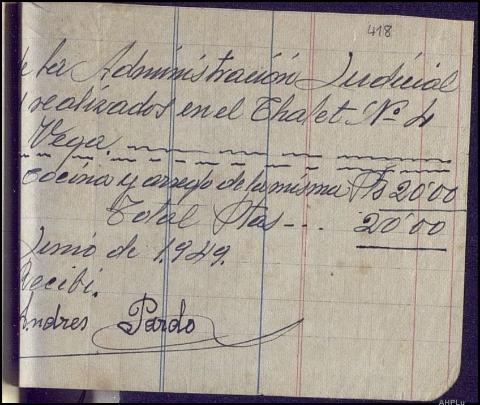 418
de la Administración Judicial
realizados en el Chalet Nº 4
Vega.
Cocina y arreglo de la misma Pts 20'00
Total Ptas --.. 20'00
Junio de 1949.
Recibí.
Andres Pardo
AHPLu